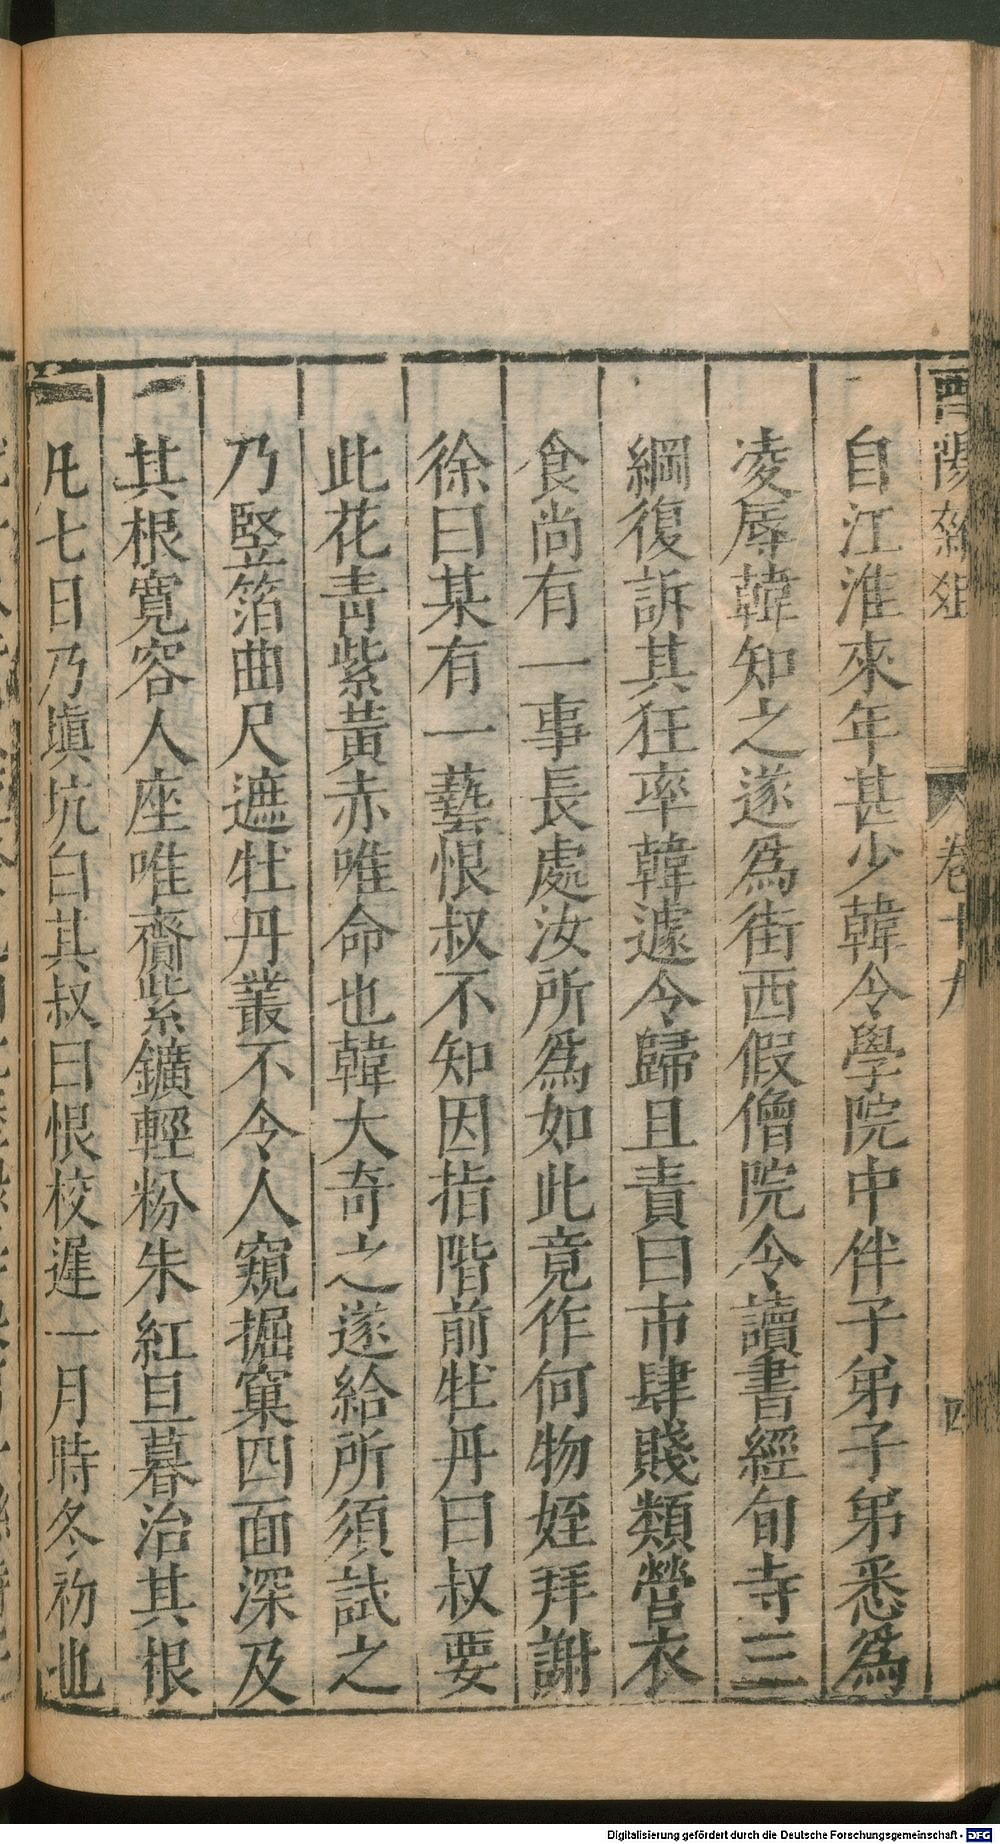 酉陽雜俎 卷十九 四
自江淮來年甚少韓令學院中伴子弟子弟悉爲
凌辱韓知之遂爲街西假僧院令讀書經旬寺三
綱復訴其狂率韓遽令歸且責曰市肆賤類營衣
食尚有一事長處汝所爲如此竟作何物姪拜謝
徐曰某有一藝恨叔不知因指階前牡丹曰叔要
此花靑紫黃赤唯命也韓大奇之遂給所須試之
乃竪箔曲尺遮牡丹叢不令人窺掘窠四面深及
其根寬容人座唯齎紫鑛輕粉朱紅旦暮治其根
凡七日乃塡坑白其叔曰恨校遲一月時冬初也
Digitalisierung gefördert durch die Deutsche Forschungsgemeinschaft - DFG